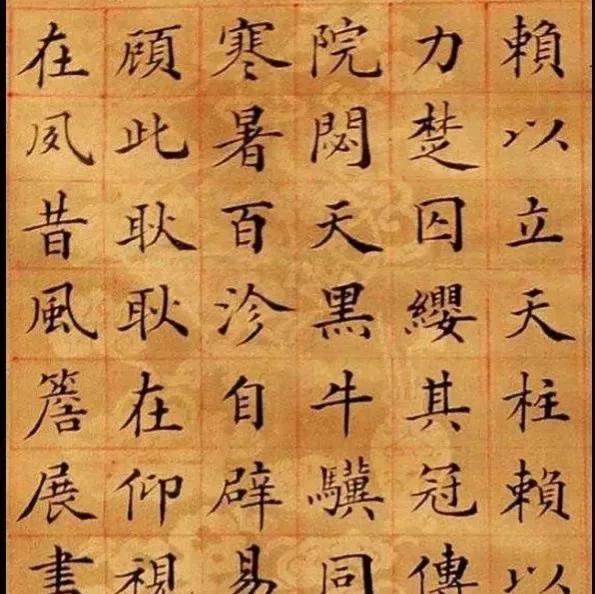 賴以立天柱賴以
力楚囚纓其冠傳
院閟天黑牛驥同
寒暑百沴自辟易
顧此耿耿在仰視
在夙昔風簷展書